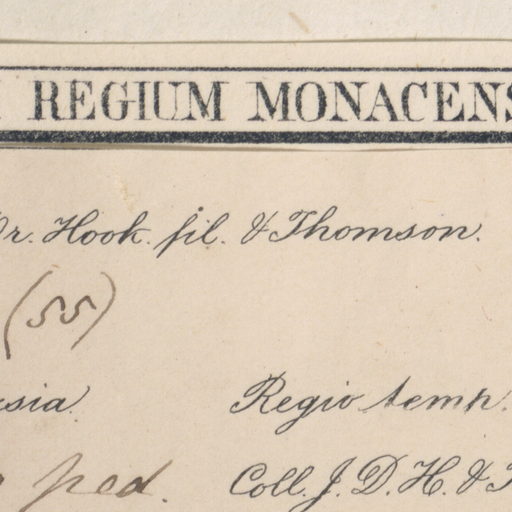 REGIUM MONACENS
Dr. Hook. fil. & Thomson.
(55)
Regio temp.
ped. Coll. J. D. H. & T